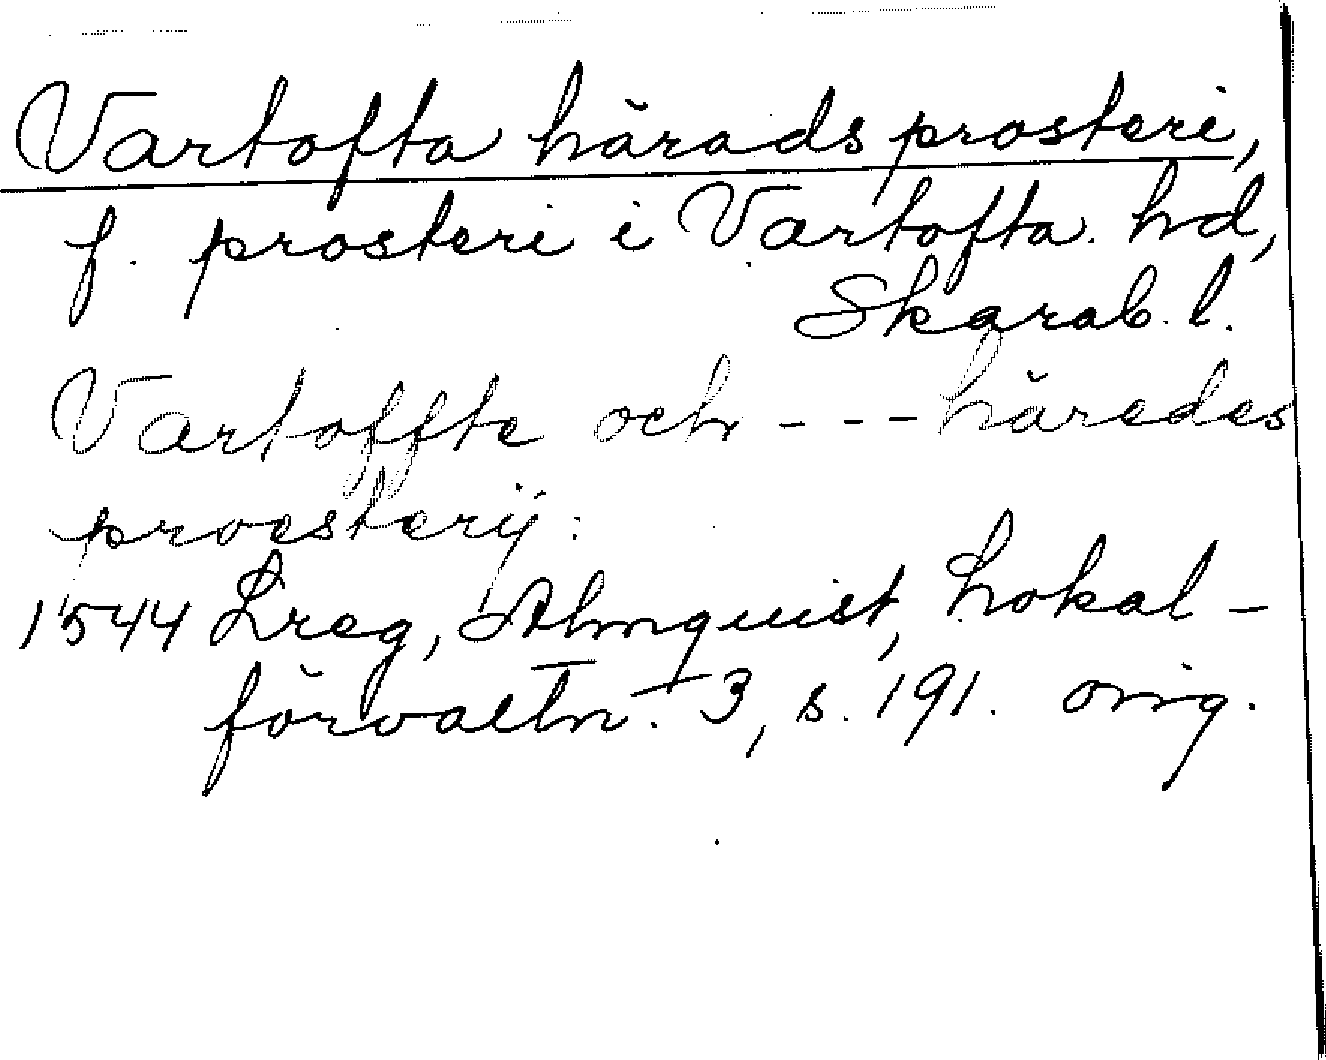 Vartofta härads prosteri,
f. prosteri i Vartofta hd,
Skarab. l.
Vartoffte och - - - häredes
proesterij:
1544 Lreg, Almquist, Lokal-
förvaltn. 3, s. 191. orig.